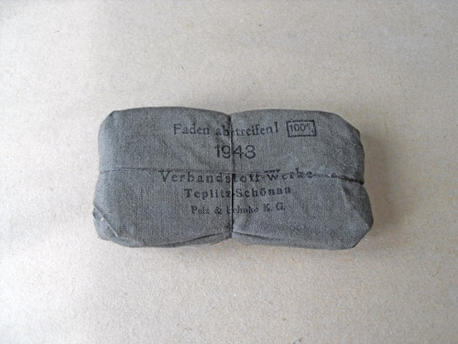 Faden abstreifen! 100%
1943
Verbandstoff-Werke
Teplitz-Schönau
& K. G.